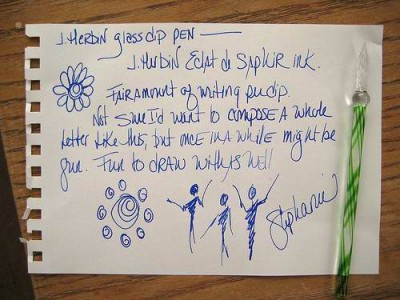 J. Herbin glass dip pen —
J. Herbin Eclat de Saphir ink.
Fair amount of writing per dip.
Not sure I'd want to compose a whole
letter like this, but once in a while might be
fun. Fun to draw with as well
Stephanie